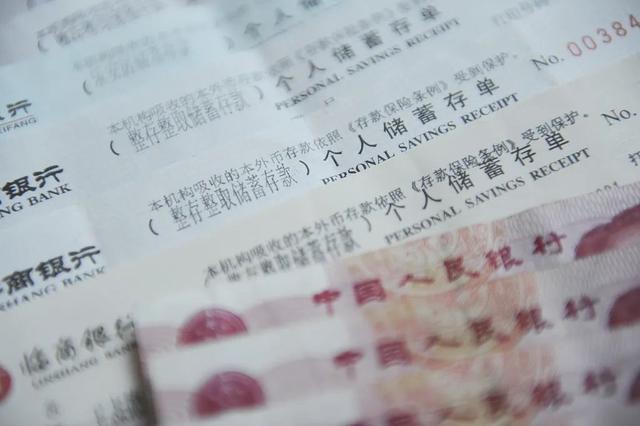 个人储蓄存单
PERSONAL SAVINGS RECEIPT
本机构吸收的本外币存款依照《存款保险条例》受到保护。
(整存整取储蓄存款)
个人储蓄存单
PERSONAL SAVINGS RECEIPT
No. 00384
银行
本机构吸收的本外币存款依照《存款保险条例》受到保护。
(整存整取储蓄存款)
个人储蓄存单
PERSONAL SAVINGS RECEIPT
No.
银行
NG BANK
本机构吸收的本外币存款依照《存款保险条例》受到保护。
(整存整取储蓄存款)
个人储蓄存单
PERSONAL SAVINGS RECEIPT
商银行
SHANG BANK
本机构吸收的本外币存款依照
整存整取储蓄存款
临商银行
LINSHANG BANK
中国人民银行
中国人民银行
中国人民银行